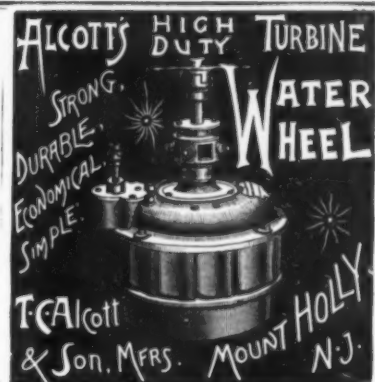 ALCOTT'S HIGH DUTY TURBINE
WATER WHEEL
STRONG,
DURABLE,
ECONOMICAL.
SIMPLE.
T.C. Alcott
& Son, MFRS. MOUNT HOLLY,
N.J.